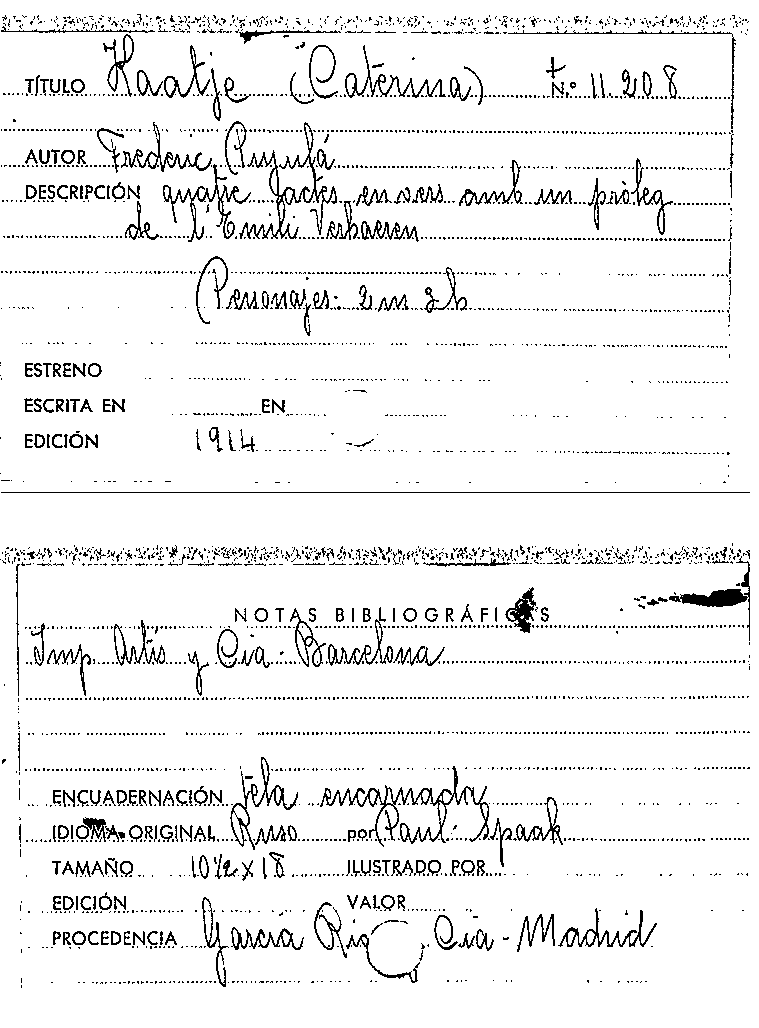 TÍTULO Kaatje (Caterina) N.º 11.208
AUTOR Frederic Pujulá
DESCRIPCIÓN quatre actes en vers amb un pròleg
de l'Emili Verhaeren
Personajes: 2 m 3 h
ESTRENO
ESCRITA EN EN
EDICIÓN 1914
NOTAS BIBLIOGRÁFICAS
Imp. Artís y Cia - Barcelona
ENCUADERNACIÓN tela encarnada
IDIOMA ORIGINAL Ruso por Paul Spaak
TAMAÑO 10½ x 18 ILUSTRADO POR
EDICIÓN VALOR
PROCEDENCIA García Rico Cia - Madrid